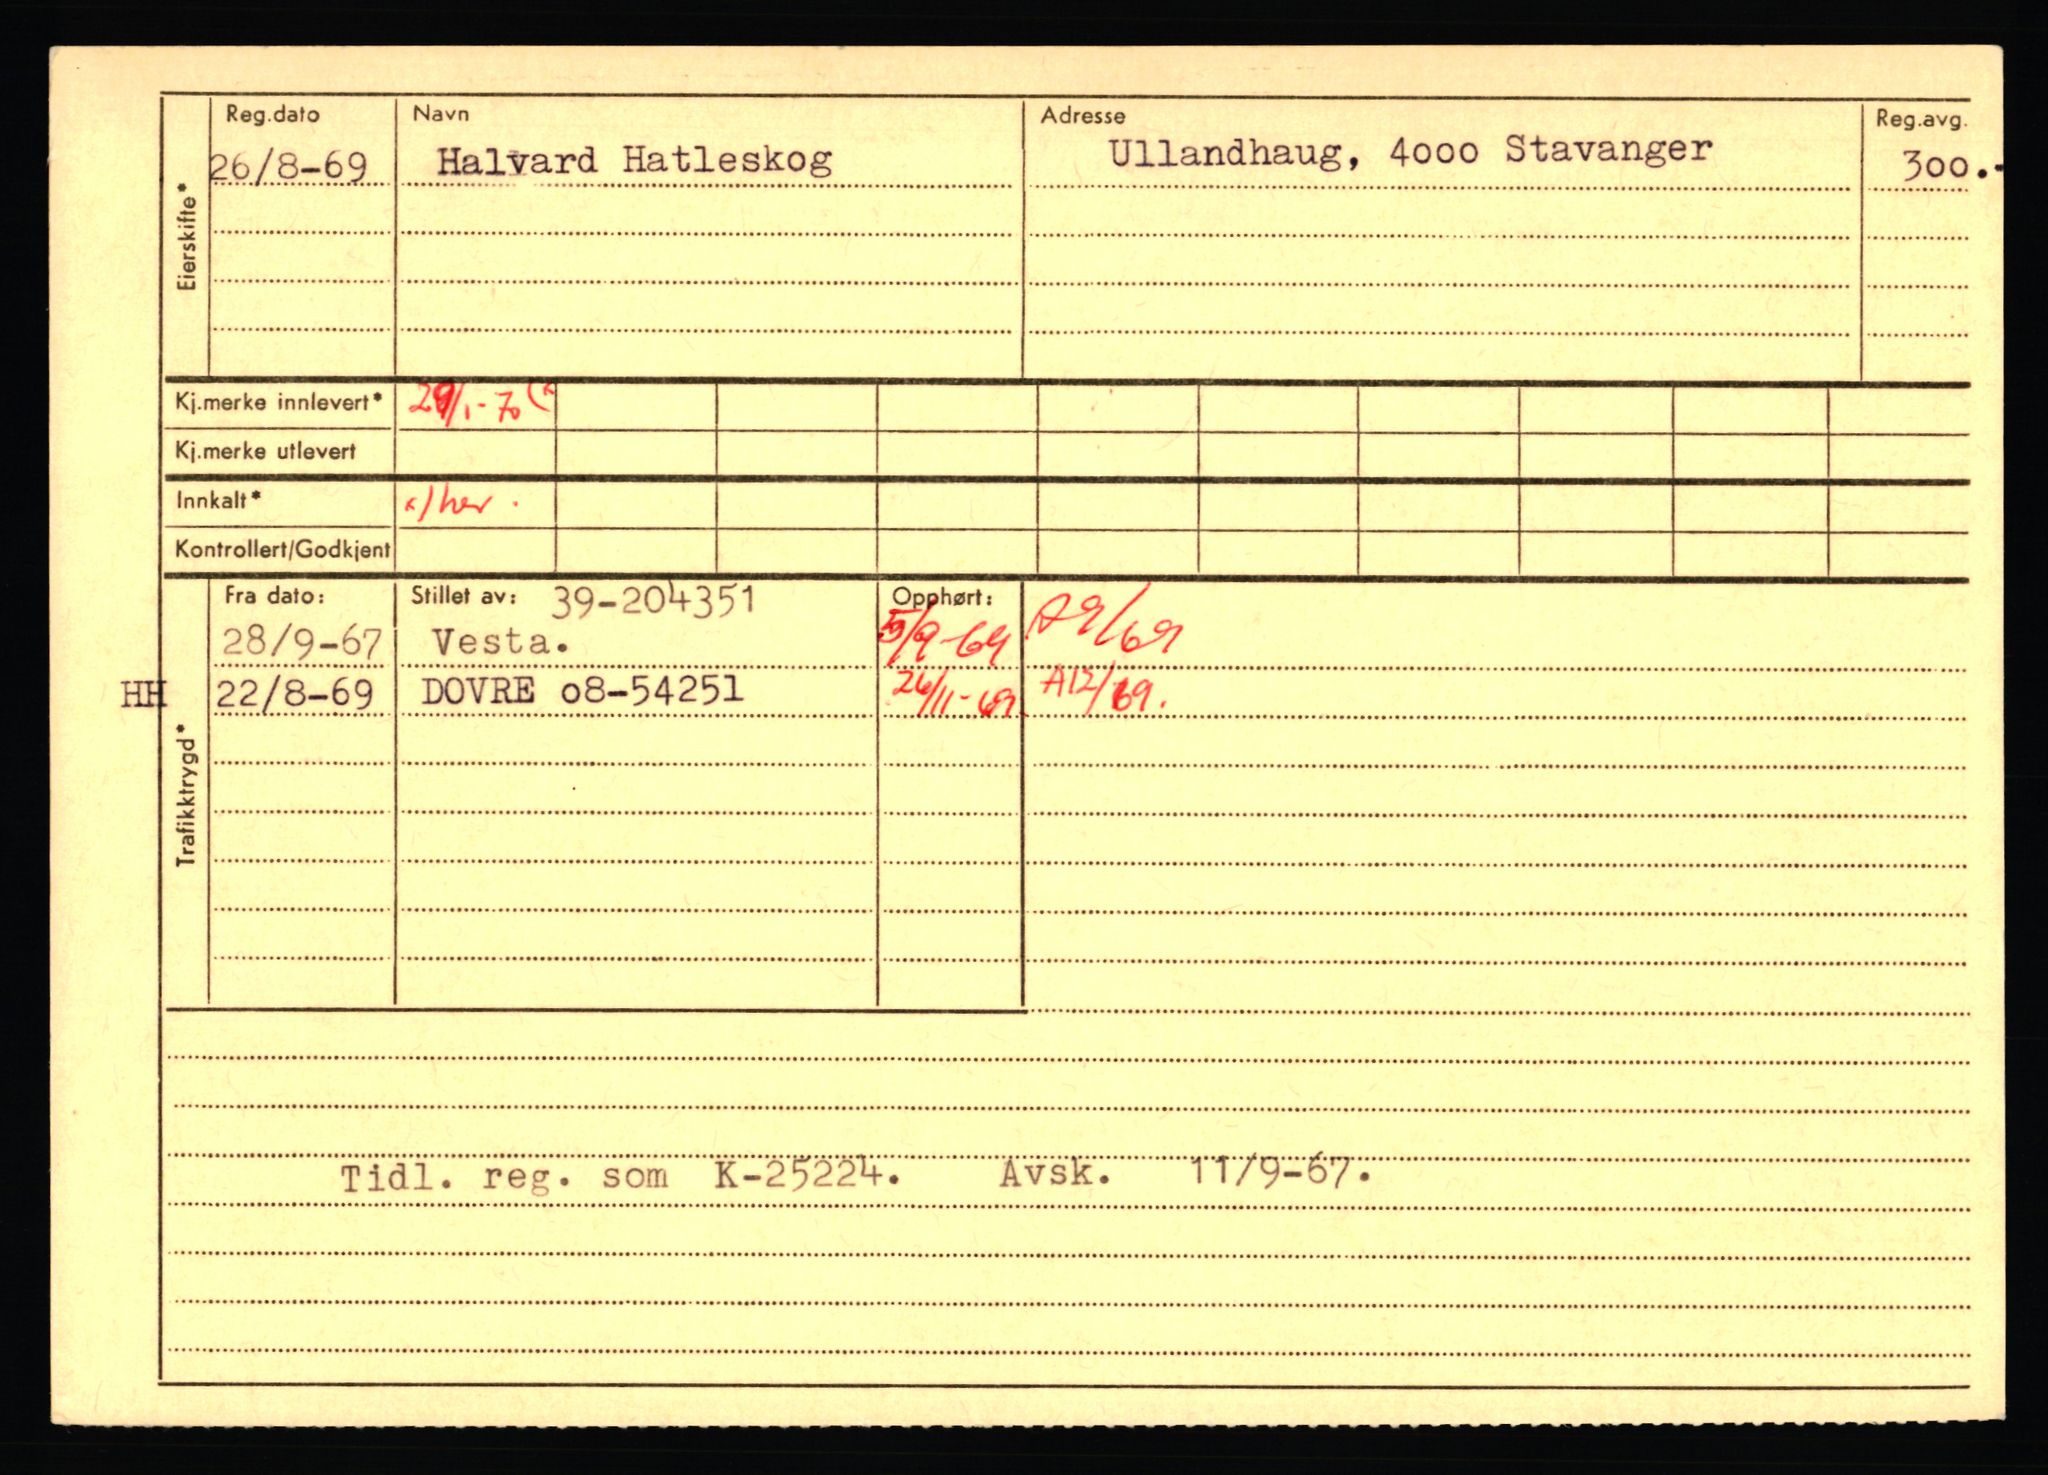 Reg.dato Navn Adresse Reg.avg.
26/8-69 Halvard Hatleskog Ullandhaug, 4000 Stavanger 300.-
Eierskifte*
Kj.merke innlevert* 29/1-70 (x
Kj.merke utlevert
Innkalt* x) her.
Kontrollert/Godkjent
Fra dato: Stillet av: 39-204351 Opphørt:
28/9-67 Vesta. 5/9-69 A9/69
HH 22/8-69 DOVRE o8-54251 26/11-69 A12/69.
Trafikktrygd*
Tidl. reg. som K-25224. Avsk. 11/9-67.